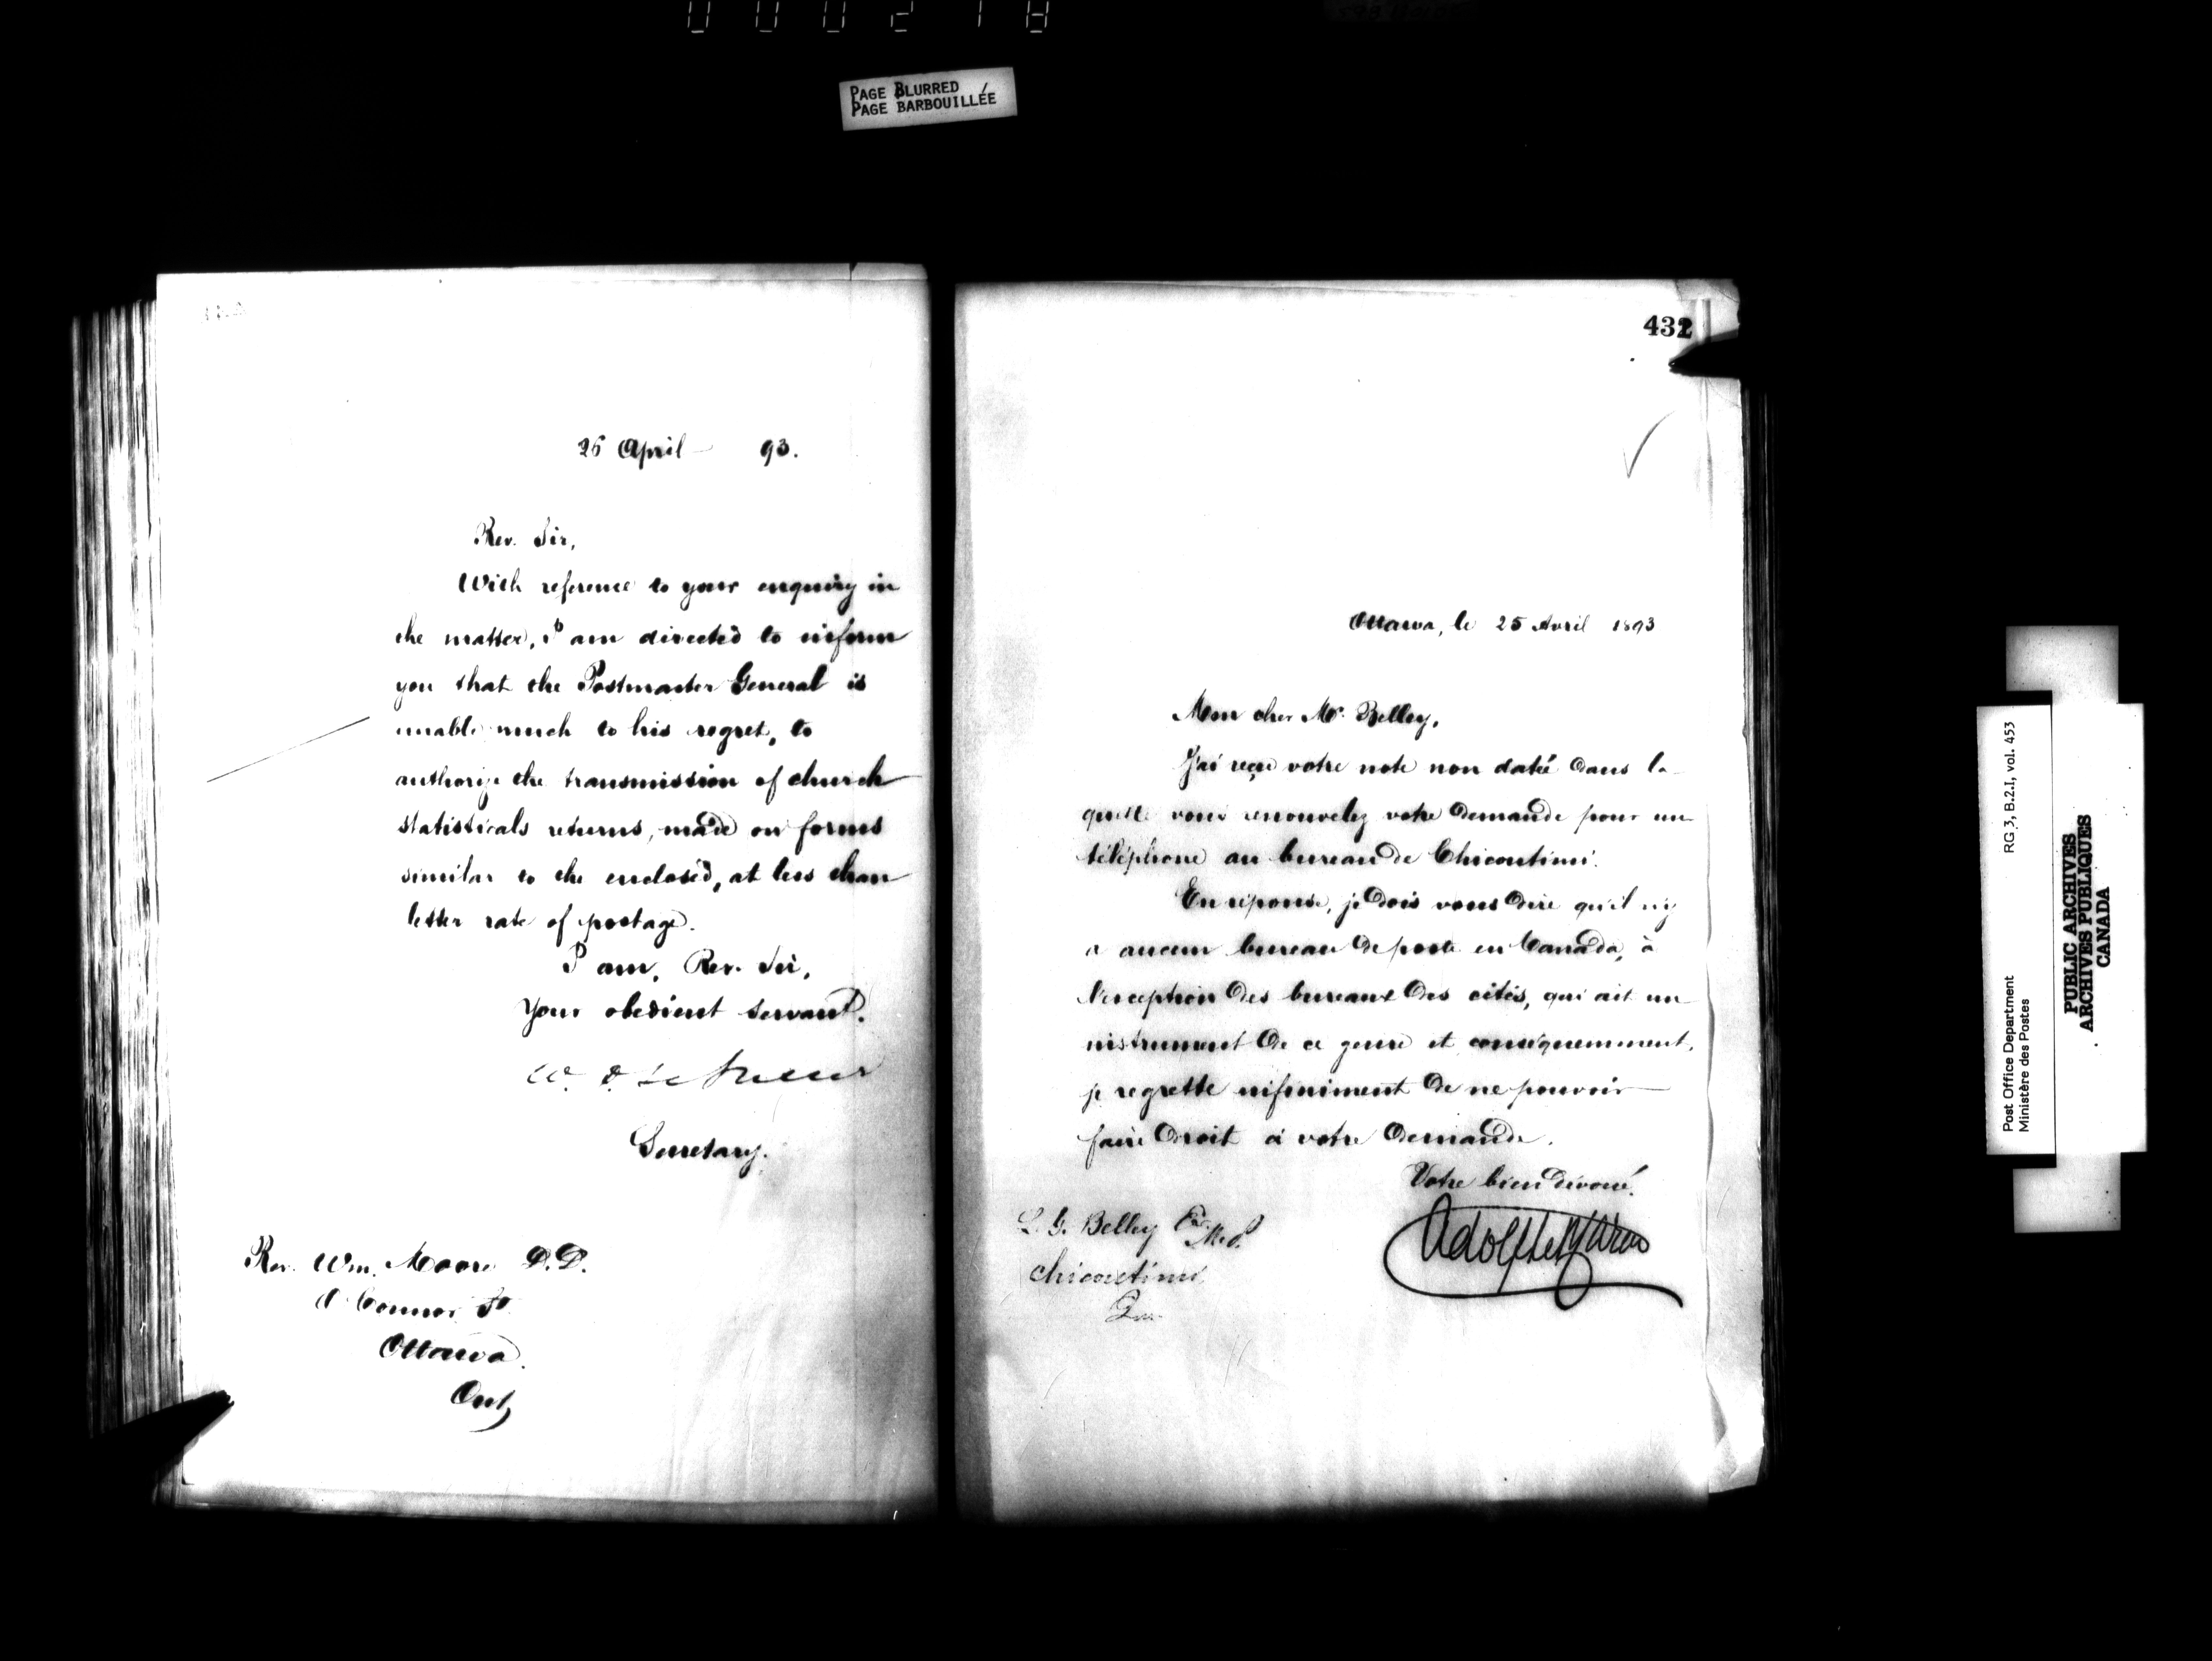 PAGE BLURRED
PAGE BARBOUILLÉE
25 April 93.
Rev. Sir,
With reference to your enquiry in
the matter, I am directed to inform
you that the Postmaster General is
unable, much to his regret, to
authorize the transmission of church
statisticals returns, made on forms
similar to the enclosed, at less than
letter rate of postage.
I am, Rev. Sir,
Your obedient servant.
W. D. LeSueur
Secretary.
Rev. Wm. Moore D.D.
O'Connor St
Ottawa.
Ont
432
Ottawa, le 25 Avril 1893
Mon cher Mr. Belley,
J'ai reçu votre note non datée dans la-
quelle vous renouvelez votre demande pour un
téléphone au bureau de Chicoutimi.
En réponse, je dois vous dire qu'il n'y
a aucun bureau de poste en Canada, à
l'exception des bureaux des cités, qui ait un
instrument de ce genre et conséquemment,
je regrette infiniment de ne pouvoir
faire droit à votre demande.
Votre bien dévoué.
Adolphe P. Caron
L. G. Belley Esr. M.P.
Chicoutimi
Que.
RG 3, B.2.I, vol. 453
Post Office Department
Ministère des Postes
PUBLIC ARCHIVES
ARCHIVES PUBLIQUES
CANADA